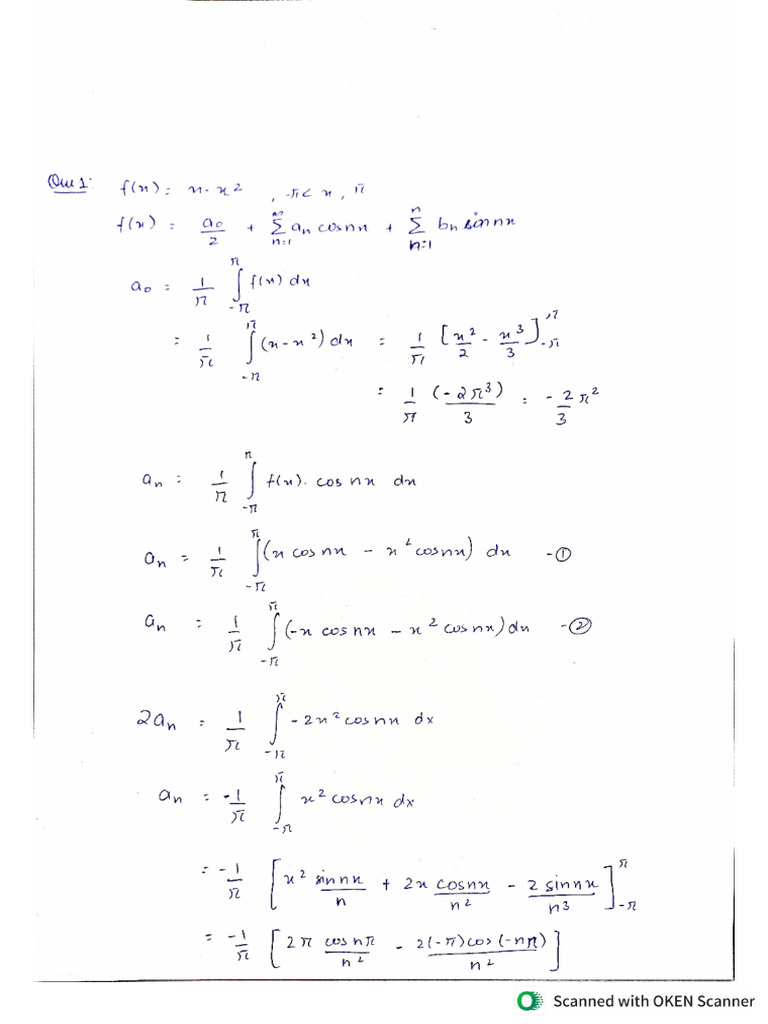 Que 1: f(x) = x - x² , -π < x , π
f(x) = a₀/2 + ∞Σn=1 aₙ cos nx + nΣn=1 bₙ sin nx
a₀ = 1/π ∫_{-π}^{π} f(x) dx
= 1/π ∫_{-π}^{π} (x - x²) dx = 1/π [x²/2 - x³/3]_{-π}^{π}
= 1/π (-2π³)/3 = -2/3 π²
aₙ = 1/π ∫_{-π}^{π} f(x). cos nx dx
aₙ = 1/π ∫_{-π}^{π} (x cos nx - x² cos nx) dx -①
aₙ = 1/π ∫_{-π}^{π} (-x cos nx - x² cos nx) dx -②
2aₙ = 1/π ∫_{-π}^{π} -2x² cos nx dx
aₙ = -1/π ∫_{-π}^{π} x² cos nx dx
= -1/π [x² sin nx/n + 2x cos nx/n² - 2 sin nx/n³]_{-π}^{π}
= -1/π [2π cos nπ/n² - 2(-π) cos(-nπ)/n²]
Scanned with OKEN Scanner